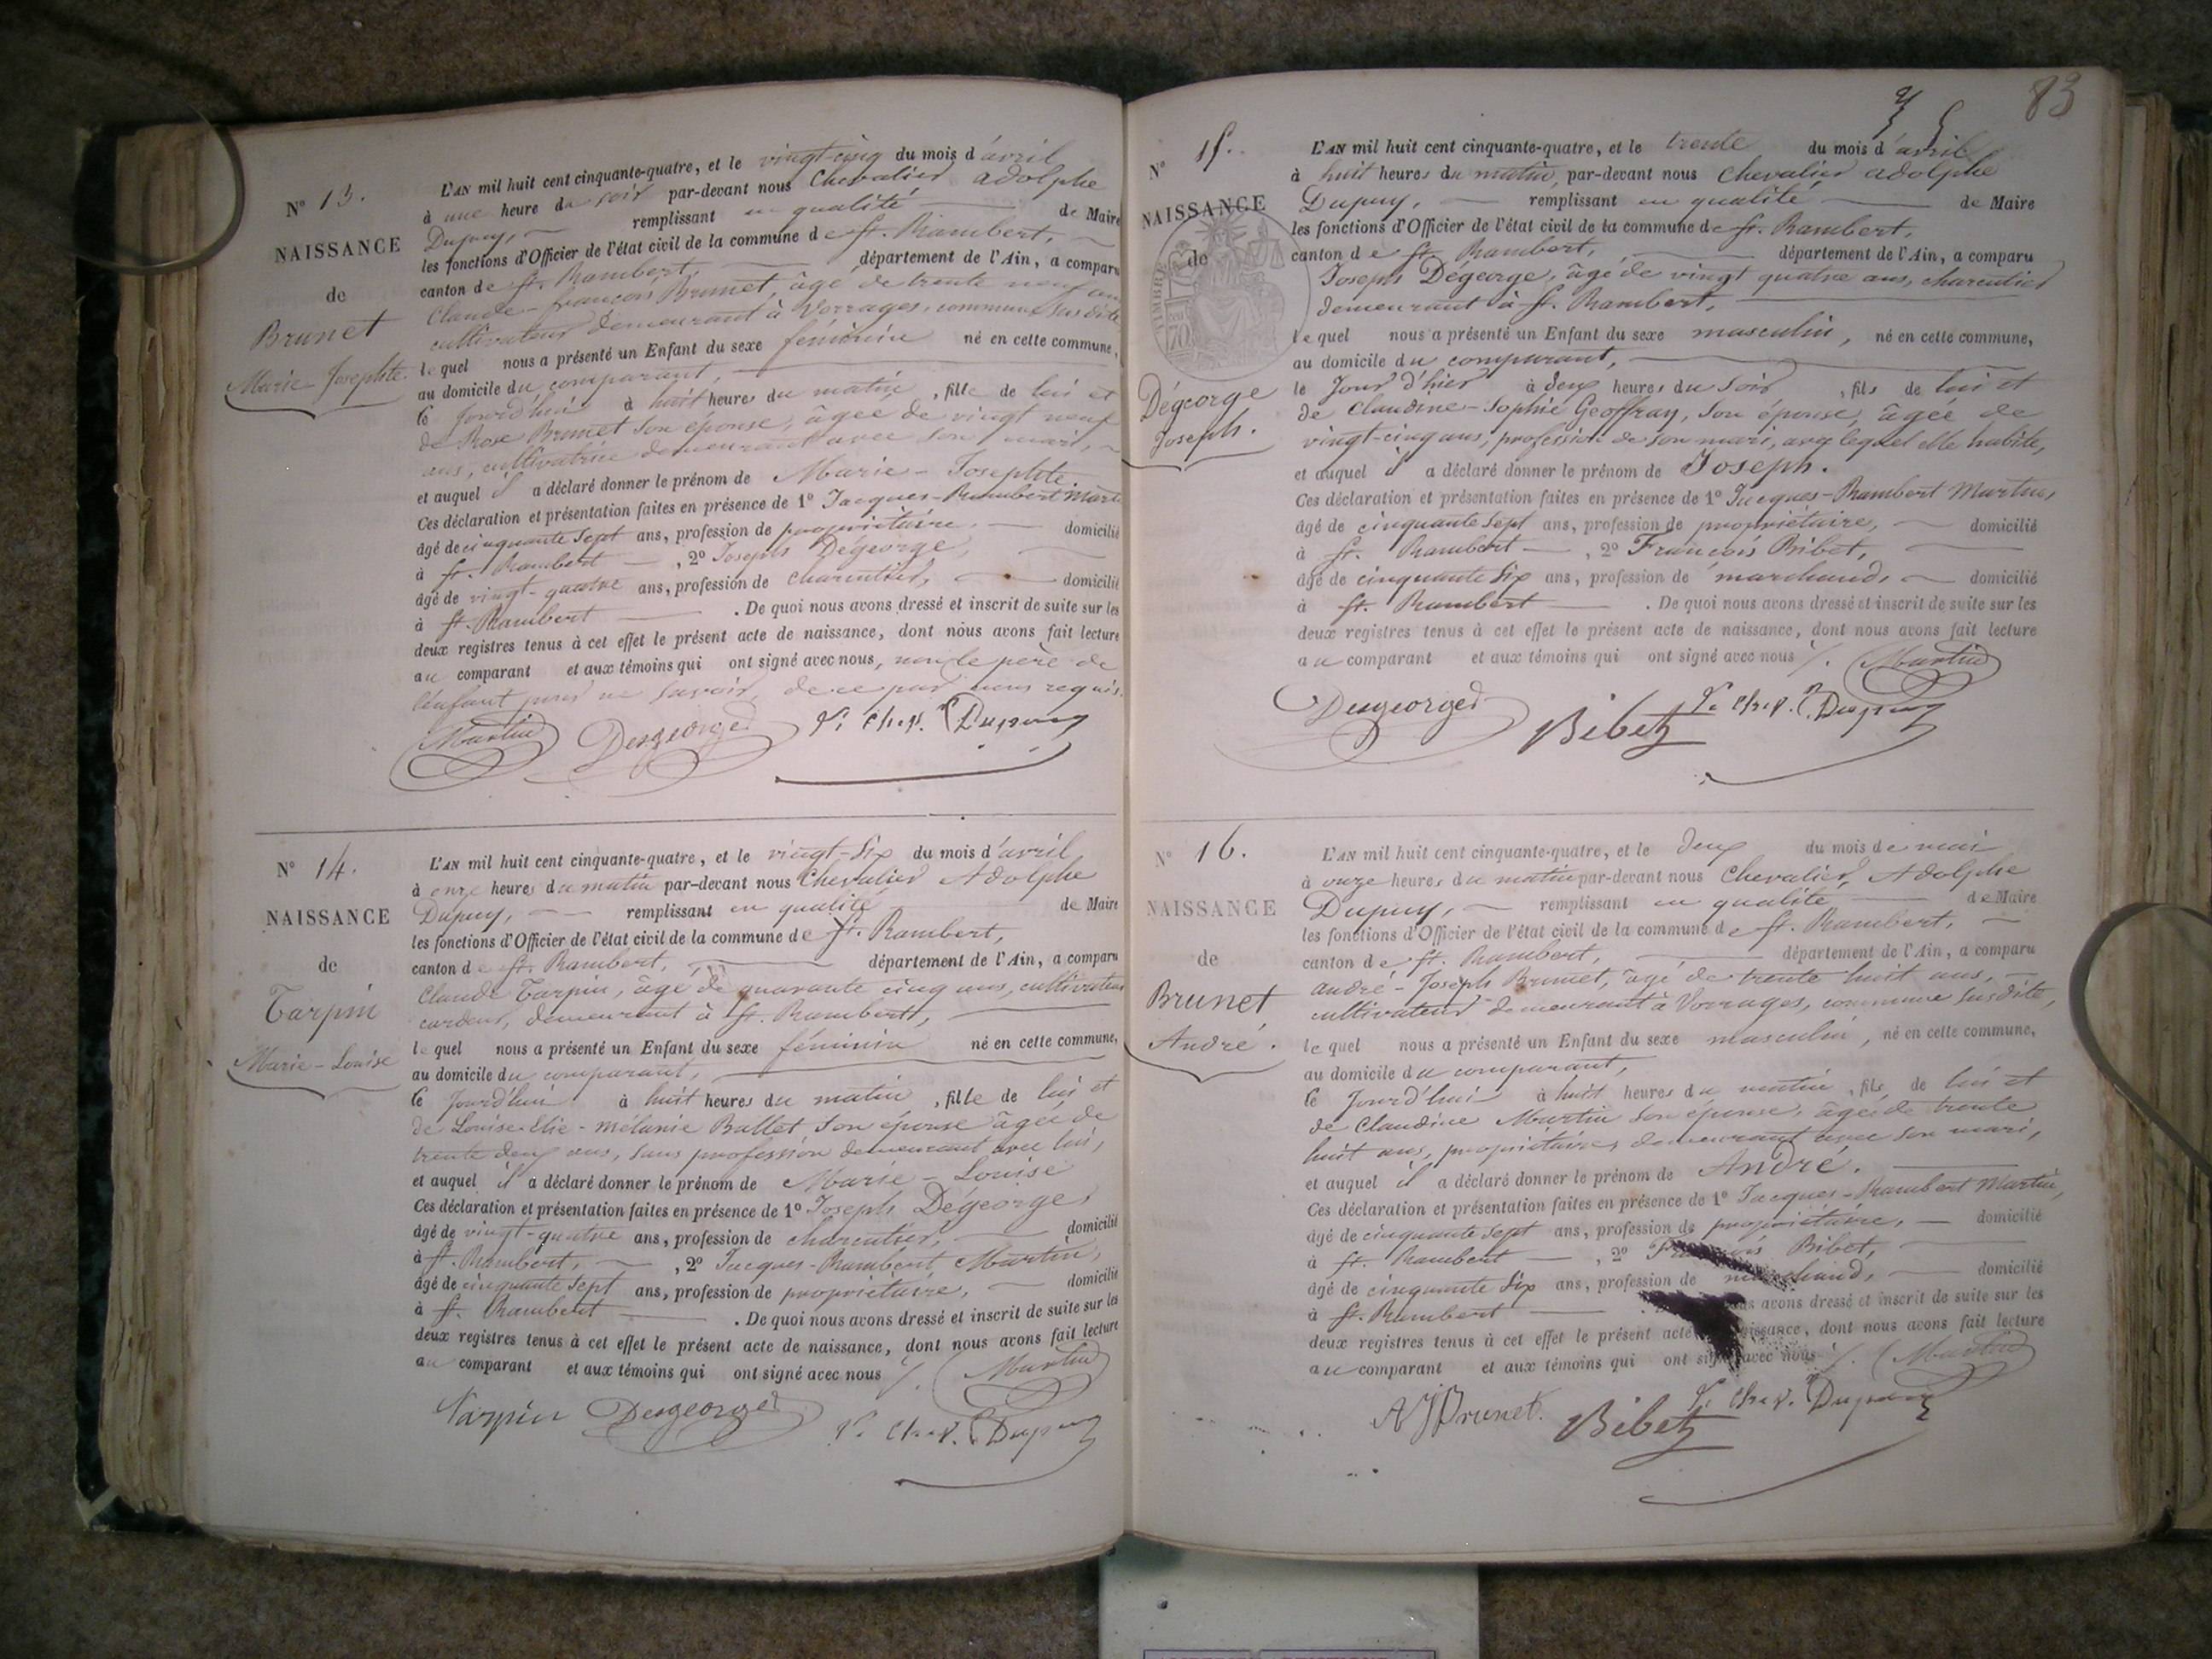 N° 13.
NAISSANCE
de
Brunet
Marie-Josephte.
L'AN mil huit cent cinquante-quatre, et le vingt-cinq du mois d'avril
à une heure du soir par-devant nous Chevalier Adolphe
Dupuy, remplissant en qualité de Maire
les fonctions d'Officier de l'état civil de la commune de St. Rambert,
canton de St. Rambert, département de l'Ain, a comparu
Claude-françois Brunet, âgé de trente neuf ans
cultivateur demeurant à Vorrages, commune susdite
lequel nous a présenté un Enfant du sexe féminin né en cette commune,
au domicile du comparant,
le jourd'hui à huit heures du matin, fille de lui et
de Rose Brunet son épouse, âgée de vingt neuf
ans, cultivatrice demeurant avec son mari,
et auquel il a déclaré donner le prénom de Marie-Josephte.
Ces déclaration et présentation faites en présence de 1° Jacques-Rambert Martin
âgé de cinquante sept ans, profession de propriétaire, domicilié
à St. Rambert, 2° Joseph Dégeorge,
âgé de vingt-quatre ans, profession de charcutier, domicilié
à St. Rambert. De quoi nous avons dressé et inscrit de suite sur les
deux registres tenus à cet effet le présent acte de naissance, dont nous avons fait lecture
au comparant et aux témoins qui ont signé avec nous, non le père de
l'enfant pour ne savoir, de ce par nous requis.
Martin Desgeorges Le Chev. Dupuy
N° 14.
NAISSANCE
de
Tarpin
Marie-Louise
L'AN mil huit cent cinquante-quatre, et le vingt-six du mois d'avril
à onze heures du matin par-devant nous Chevalier Adolphe
Dupuy, remplissant en qualité de Maire
les fonctions d'Officier de l'état civil de la commune de St. Rambert,
canton de St. Rambert, département de l'Ain, a comparu
Claude Tarpin, âgé de quarante cinq ans, cultivateur
cardeur, demeurant à St. Rambert,
lequel nous a présenté un Enfant du sexe féminin né en cette commune,
au domicile du comparant,
le jourd'hui à huit heures du matin, fille de lui et
de Louise-Elie-mélanie Ballet son épouse âgée de
trente deux ans, sans profession demeurant avec lui,
et auquel il a déclaré donner le prénom de Marie-Louise
Ces déclaration et présentation faites en présence de 1° Joseph Dégeorge,
âgé de vingt-quatre ans, profession de charcutier, domicilié
à St. Rambert, 2° Jacques-Rambert Martin,
âgé de cinquante sept ans, profession de propriétaire, domicilié
à St. Rambert. De quoi nous avons dressé et inscrit de suite sur les
deux registres tenus à cet effet le présent acte de naissance, dont nous avons fait lecture
au comparant et aux témoins qui ont signé avec nous /. Martin
Tarpin Desgeorges Le Chev. Dupuy
83
N° 15.
NAISSANCE
de
TIMBRE
70
Dégeorge
Joseph.
L'AN mil huit cent cinquante-quatre, et le trente du mois d'avril
à huit heures du matin, par-devant nous Chevalier Adolphe
Dupuy, remplissant en qualité de Maire
les fonctions d'Officier de l'état civil de la commune de St. Rambert,
canton de St. Rambert, département de l'Ain, a comparu
Joseph Dégeorge, âgé de vingt quatre ans, charcutier
demeurant à St. Rambert,
lequel nous a présenté un Enfant du sexe masculin, né en cette commune,
au domicile du comparant,
le jour d'hier à deux heures du soir, fils de lui et
de Claudine-Sophie Geoffray, son épouse, âgée de
vingt-cinq ans, profession de son mari, avec lequel elle habite,
et auquel il a déclaré donner le prénom de Joseph.
Ces déclaration et présentation faites en présence de 1° Jacques-Rambert Martin,
âgé de cinquante sept ans, profession de propriétaire, domicilié
à St. Rambert, 2° François Bibet,
âgé de cinquante six ans, profession de marchand, domicilié
à St. Rambert. De quoi nous avons dressé et inscrit de suite sur les
deux registres tenus à cet effet le présent acte de naissance, dont nous avons fait lecture
au comparant et aux témoins qui ont signé avec nous /. Martin
Desgeorges Bibet Le Chev. Dupuy
N° 16.
NAISSANCE
de
Brunet
André.
L'AN mil huit cent cinquante-quatre, et le deux du mois de mai
à onze heures du matin par-devant nous Chevalier Adolphe
Dupuy, remplissant en qualité de Maire
les fonctions d'Officier de l'état civil de la commune de St. Rambert,
canton de St. Rambert, département de l'Ain, a comparu
André-Joseph Brunet, âgé de trente huit ans,
cultivateur demeurant à Vorrages, commune susdite,
lequel nous a présenté un Enfant du sexe masculin, né en cette commune,
au domicile du comparant,
le jourd'hui à huit heures du matin, fils de lui et
de Claudine Martin son épouse, âgée de trente
huit ans, propriétaire, demeurant avec son mari,
et auquel il a déclaré donner le prénom de André.
Ces déclaration et présentation faites en présence de 1° Jacques-Rambert Martin,
âgé de cinquante sept ans, profession de propriétaire, domicilié
à St. Rambert, 2° François Bibet,
âgé de cinquante six ans, profession de marchand, domicilié
à St. Rambert avons dressé et inscrit de suite sur les
deux registres tenus à cet effet le présent acte naissance, dont nous avons fait lecture
au comparant et aux témoins qui ont signé avec nous /. Martin
AJBrunet. Bibet Le Chev. Dupuy